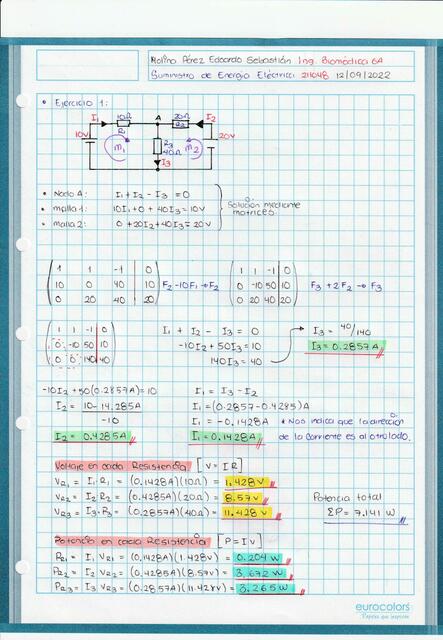 Molina Pérez Edoardo Sebastián Ing. Biomédica 6A
Suministro de Energía Eléctrica 211048 12/09/2022
• Ejercicio 1:
I1 10Ω A 20Ω I2
R1 R2
10v M1 R3 40Ω M2 20v
I3
• Nodo A: I1 + I2 - I3 = 0
• malla 1: 10I1 + 0 + 40I3 = 10v
• malla 2: 0 + 20I2 + 40I3 = 20v
Solución mediante matrices.
1 1 -1 0 1 1 -1 0
10 0 40 10 F2 - 10F1 → F2 0 -10 50 10 F3 + 2F2 → F3
0 20 40 20 0 20 40 20
1 1 -1 0 I1 + I2 - I3 = 0 I3 = 40/140
0 -10 50 10 -10I2 + 50I3 = 10 I3 = 0.2857A
0 0 140 40 140I3 = 40
-10I2 + 50(0.2857A) = 10 I1 = I3 - I2
I2 = 10 - 14.285A / -10 I1 = (0.2857 - 0.4285)A
I1 = -0.1428A * Nos indica que la dirección
I2 = 0.4285A I1 = 0.1428A de la corriente es al otro lado.
Voltaje en cada Resistencia [V = IR]
VR1 = I1·R1 = (0.1428A)(10Ω) = 1.428v
VR2 = I2 R2 = (0.4285A)(20Ω) = 8.57v
VR3 = I3·R3 = (0.2857A)(40Ω) = 11.428v
Potencia total
ΣP = 7.141 w
Potencia en cada Resistencia [P = I V]
PR1 = I1 VR1 = (0.1428A)(1.428v) = 0.204 w
PR2 = I2 VR2 = (0.4285A)(8.57v) = 3.672 w
PR3 = I3 VR3 = (0.2857A)(11.428v) = 3.265 w
eurocolors
Papeles que inspiran